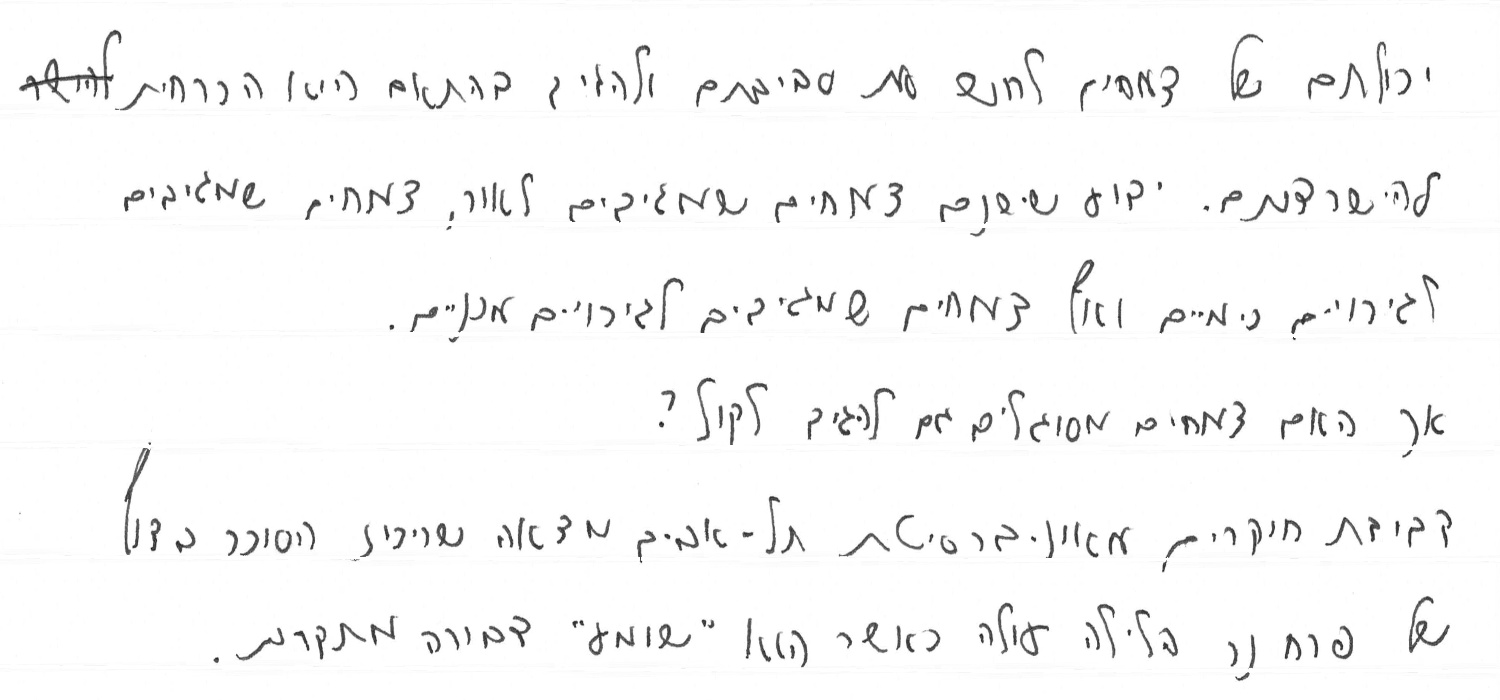 יכולתם של צמחים לחוש את סביבתם ולהגיב בהתאם היא הכרחית
להישרדותם. ידוע שישנם צמחים שמגיבים לאור, צמחים שמגיבים
לגירויים כימיים ואף צמחים שמגיבים לגירויים מכניים.
אך האם צמחים מסוגלים גם להגיב לקול?
קבוצת חוקרים מאוניברסיטת תל-אביב מצאה שריכוז הסוכר בצוף
של פרח נר הלילה עולה כאשר הוא "שומע" דבורה מתקרבת.